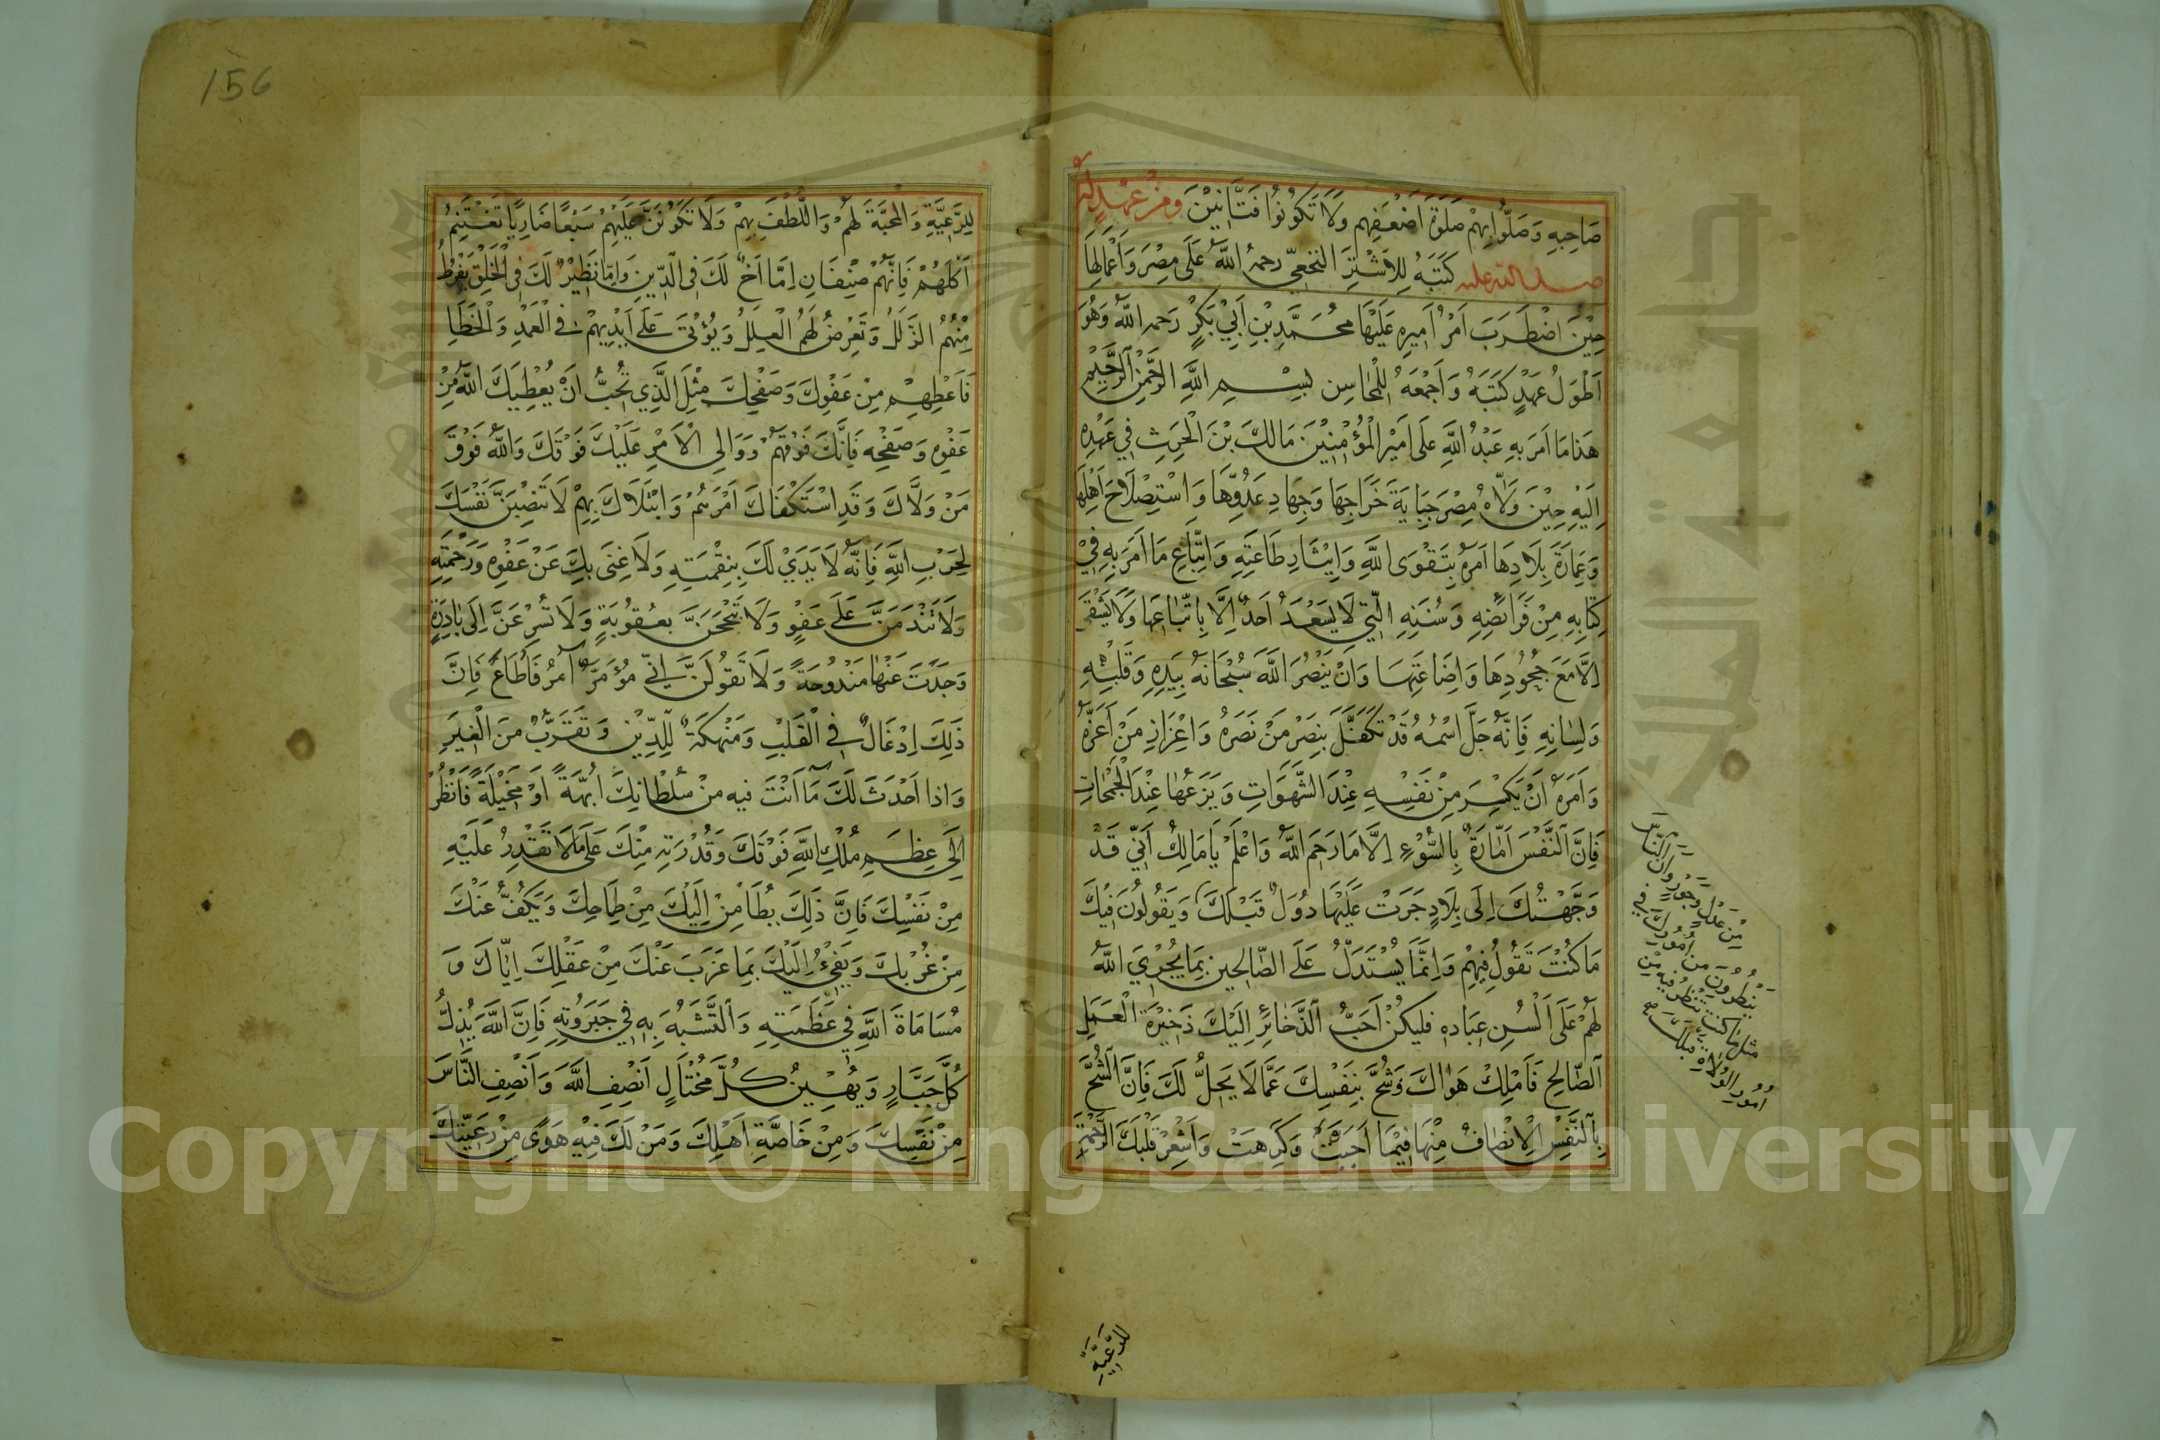 صَاحِبِهِ وَصَلُّوا بِهِمْ صَلَوةَ اَضْعَفِهِم وَلَا تَكُونُوا فَتَّانِيْنَ وَمِنْ عَهْدٍ لَهُ
كَتَبَهُ لِلاَشْتَرِ النخعِيّ رحمهُ اللّٰهُ عَلَى مِصْرَ وَاَعْمَالِهَا
حِيْنَ اضْطَرَبَ اَمْرُ اَمِيرِهِ عَلَيْهَا مُحَمَّدِ بْنِ اَبِيْ بَكْرٍ رَحمه اللّٰهُ وَهُوَ
اَطْوَلُ عَهْدٍ كَتَبَهُ وَاَجْمَعَهُ لِلْمَحَاسِن بِسْمِ اللّٰهِ الرَّحْمٰنِ الرَّحِيْمِ
هَذَا مَا اَمَرَ بِهِ عَبْدُ اللّٰهِ عَلَى اَمِيْر الْمُؤْمِنِيْنَ مَالِكَ بْنَ الْحَرِثِ فِي عَهْدِهِ
اِلَيْهِ حِيْنَ وَلَّاهُ مِصْرَ جِبَايَةَ خَرَاجِهَا وَجِهَادِ عَدُوِّهَا وَاسْتِصْلَاحَ اَهْلِهَا
وَعِمَارَةَ بِلَادِهَا اَمَرَهُ بِتَقْوَى اللّٰهِ وَاِيْثَارِ طَاعَتِهِ وَاتِّبَاعِ مَا اَمَرَ بِهِ فِيْ
كِتَابِهِ مِنْ فَرَائِضِهِ وَسُنَنِهِ الَّتِي لَا يَسْعَدُ اَحَدٌ اِلَّا بِاتِّبَاعِهَا وَلَا يَشْقَى
اِلَّا مَعَ جُحُودِهَا وَاِضَاعَتِهَا وَاَنْ يَنْصُرَ اللّٰهَ سُبْحَانَهُ بِيَدِهِ وَقَلْبِهِ
وَلِسَانِهِ فَاِنَّهُ جَلَّ اسْمُهُ قَدْ تَكَفَّلَ بِنَصْرِ مَنْ نَصَرَهُ وَاِعْزَازِ مَنْ اَعَزَّهُ
وَاَمَرَهُ اَنْ يَكْسِرَ مِنْ نَفْسِهِ عِنْدَ الشَّهَوَاتِ وَيَزَعُهَا عِنْدَ الْجَمَحَاتِ
فَاِنَّ النَّفْسَ اَمَّارَةٌ بِالسُّوْءِ اِلَّا مَا رَحِمَ اللّٰهُ وَاعْلَمْ يَا مَالِكُ اَنِّي قَدْ
وَجَّهْتُكَ اِلَى بِلَادٍ جَرَتْ عَلَيْهَا دُوَلٌ قَبْلَكَ وَيَقُولُونَ فِيْكَ
مَا كُنْتَ تَقُولُ فِيْهِمْ وَاِنَّمَا يُسْتَدَلُّ عَلَى الصَّالِحِينَ بِمَا يُجْرِي اللّٰهُ
لَهُمْ عَلَى اَلْسُنِ عِبَادِهِ فَليَكُنْ اَحَبُّ الذَّخَائِرِ اِلَيْكَ ذَخِيْرَةَ الْعَمَلِ
الصَّالِحِ فَامْلِكْ هَوَاكَ وَشُحَّ بِنَفْسِكَ عَمَّا لَا يَحِلُّ لَكَ فَاِنَّ الشُّحَّ
بِالنَّفْسِ الْاِنْصَافُ مِنْهَا فِيْمَا اَحَبَّتْ وَكَرِهَتْ وَاَشْعِرْ قَلْبَكَ الرَّحْمَةَ
مِنْ عَدْلٍ وَجَوْرٍ وَاَنَّ النَّاسَ
يَنْظُرُونَ مِنْ اُمُورِكَ فِي
مثل مَا كنتَ تَنْظُرُ فيهِ مِنْ
اُمُورِ الوُلَاةِ قَبلَكَ صح
للرَّعِيَّةِ
156
لِلرَّعِيَّةِ وَالْمَحَبَّةَ لَهُمْ وَاللُّطْفَ بِهِمْ وَلَا تَكُونَنَّ عَلَيْهِمْ سَبُعًا ضَارِيًا تَغْتَنِمُ
اَكْلَهُمْ فَاِنَّهُمْ صِنْفَانِ اِمَّا اَخٌ لَكَ فِي الدِّيْنِ وَاِمَّا نَظِيْرٌ لَكَ فِي الْخَلْقِ يَفْرُطُ
مِنْهُمُ الزَّلَلُ وَتَعْرِضُ لَهُمُ الْعِلَلُ وَيُؤْتَى عَلَى اَيْدِيهِمْ فِي الْعَمْدِ وَالْخَطَاِ
فَاَعْطِهِمْ مِنْ عَفْوِكَ وَصَفْحِكَ مِثْلَ الَّذِي تُحِبُّ اَنْ يُعْطِيَكَ اللّٰهُ مِنْ
عَفْوِهِ وَصَفْحِهِ فَاِنَّكَ فَوْقَهُمْ وَوَالِي الْاَمْرِ عَلَيْكَ فَوْقَكَ وَاللّٰهُ فَوْقَ
مَنْ وَلَّاكَ وَقَدِ اسْتَكْفَاكَ اَمْرَهُمْ وَابْتَلَاكَ بِهِمْ لَا تَنْصِبَنَّ نَفْسَكَ
لِحَرْبِ اللّٰهِ فَاِنَّهُ لَا يَدَيْ لَكَ بِنِقْمَتِهِ وَلَا غِنَى بِكَ عَنْ عَفْوِهِ وَرَحْمَتِهِ
وَلَا تَنْدَمَنَّ عَلَى عَفْوٍ وَلَا تَبْجَحَنَّ بِعُقُوبَةٍ وَلَا تُسْرِعَنَّ اِلَى بَادِرَةٍ
وَجَدْتَ عَنْهَا مَنْدُوحَةً وَلَا تَقُولَنَّ اِنِّي مُؤَمَّرٌ آمُرُ فَاُطَاعُ فَاِنَّ
ذَلِكَ اِدْغَالٌ فِي الْقَلْبِ وَمَنْهَكَةٌ لِلدِّيْنِ وَتَقَرُّبٌ مِنَ الْغِيَرِ
وَاِذَا اَحْدَثَ لَكَ مَا اَنْتَ فِيهِ مِنْ سُلْطَانِكَ اُبَّهَةً اَوْ مَخِيْلَةً فَانْظُرْ
اِلَى عِظَمِ مُلْكِ اللّٰهِ فَوْقَكَ وَقُدْرَتِهِ مِنْكَ عَلَى مَا لَا تَقْدِرُ عَلَيْهِ
مِنْ نَفْسِكَ فَاِنَّ ذَلِكَ يُطَاْمِنُ اِلَيْكَ مِنْ طِمَاحِكَ وَيَكُفُّ عَنْكَ
مِنْ غَرْبِكَ وَيَفِيْءُ اِلَيْكَ بِمَا عَزَبَ عَنْكَ مِنْ عَقْلِكَ اِيَّاكَ وَ
مُسَامَاةَ اللّٰهِ فِي عَظَمَتِهِ وَالتَّشَبُّهَ بِهِ فِي جَبَرُوتِهِ فَاِنَّ اللّٰهَ يُذِلُّ
كُلَّ جَبَّارٍ وَيُهِيْنُ كُلَّ مُخْتَالٍ اَنْصِفِ اللّٰهَ وَاَنْصِفِ النَّاسَ
مِنْ نَفْسِكَ وَمِنْ خَاصَّةِ اَهْلِكَ وَمَنْ لَكَ فِيْهِ هَوًى مِنْ رَعِيَّتِكَ
Copyright © King Saud University